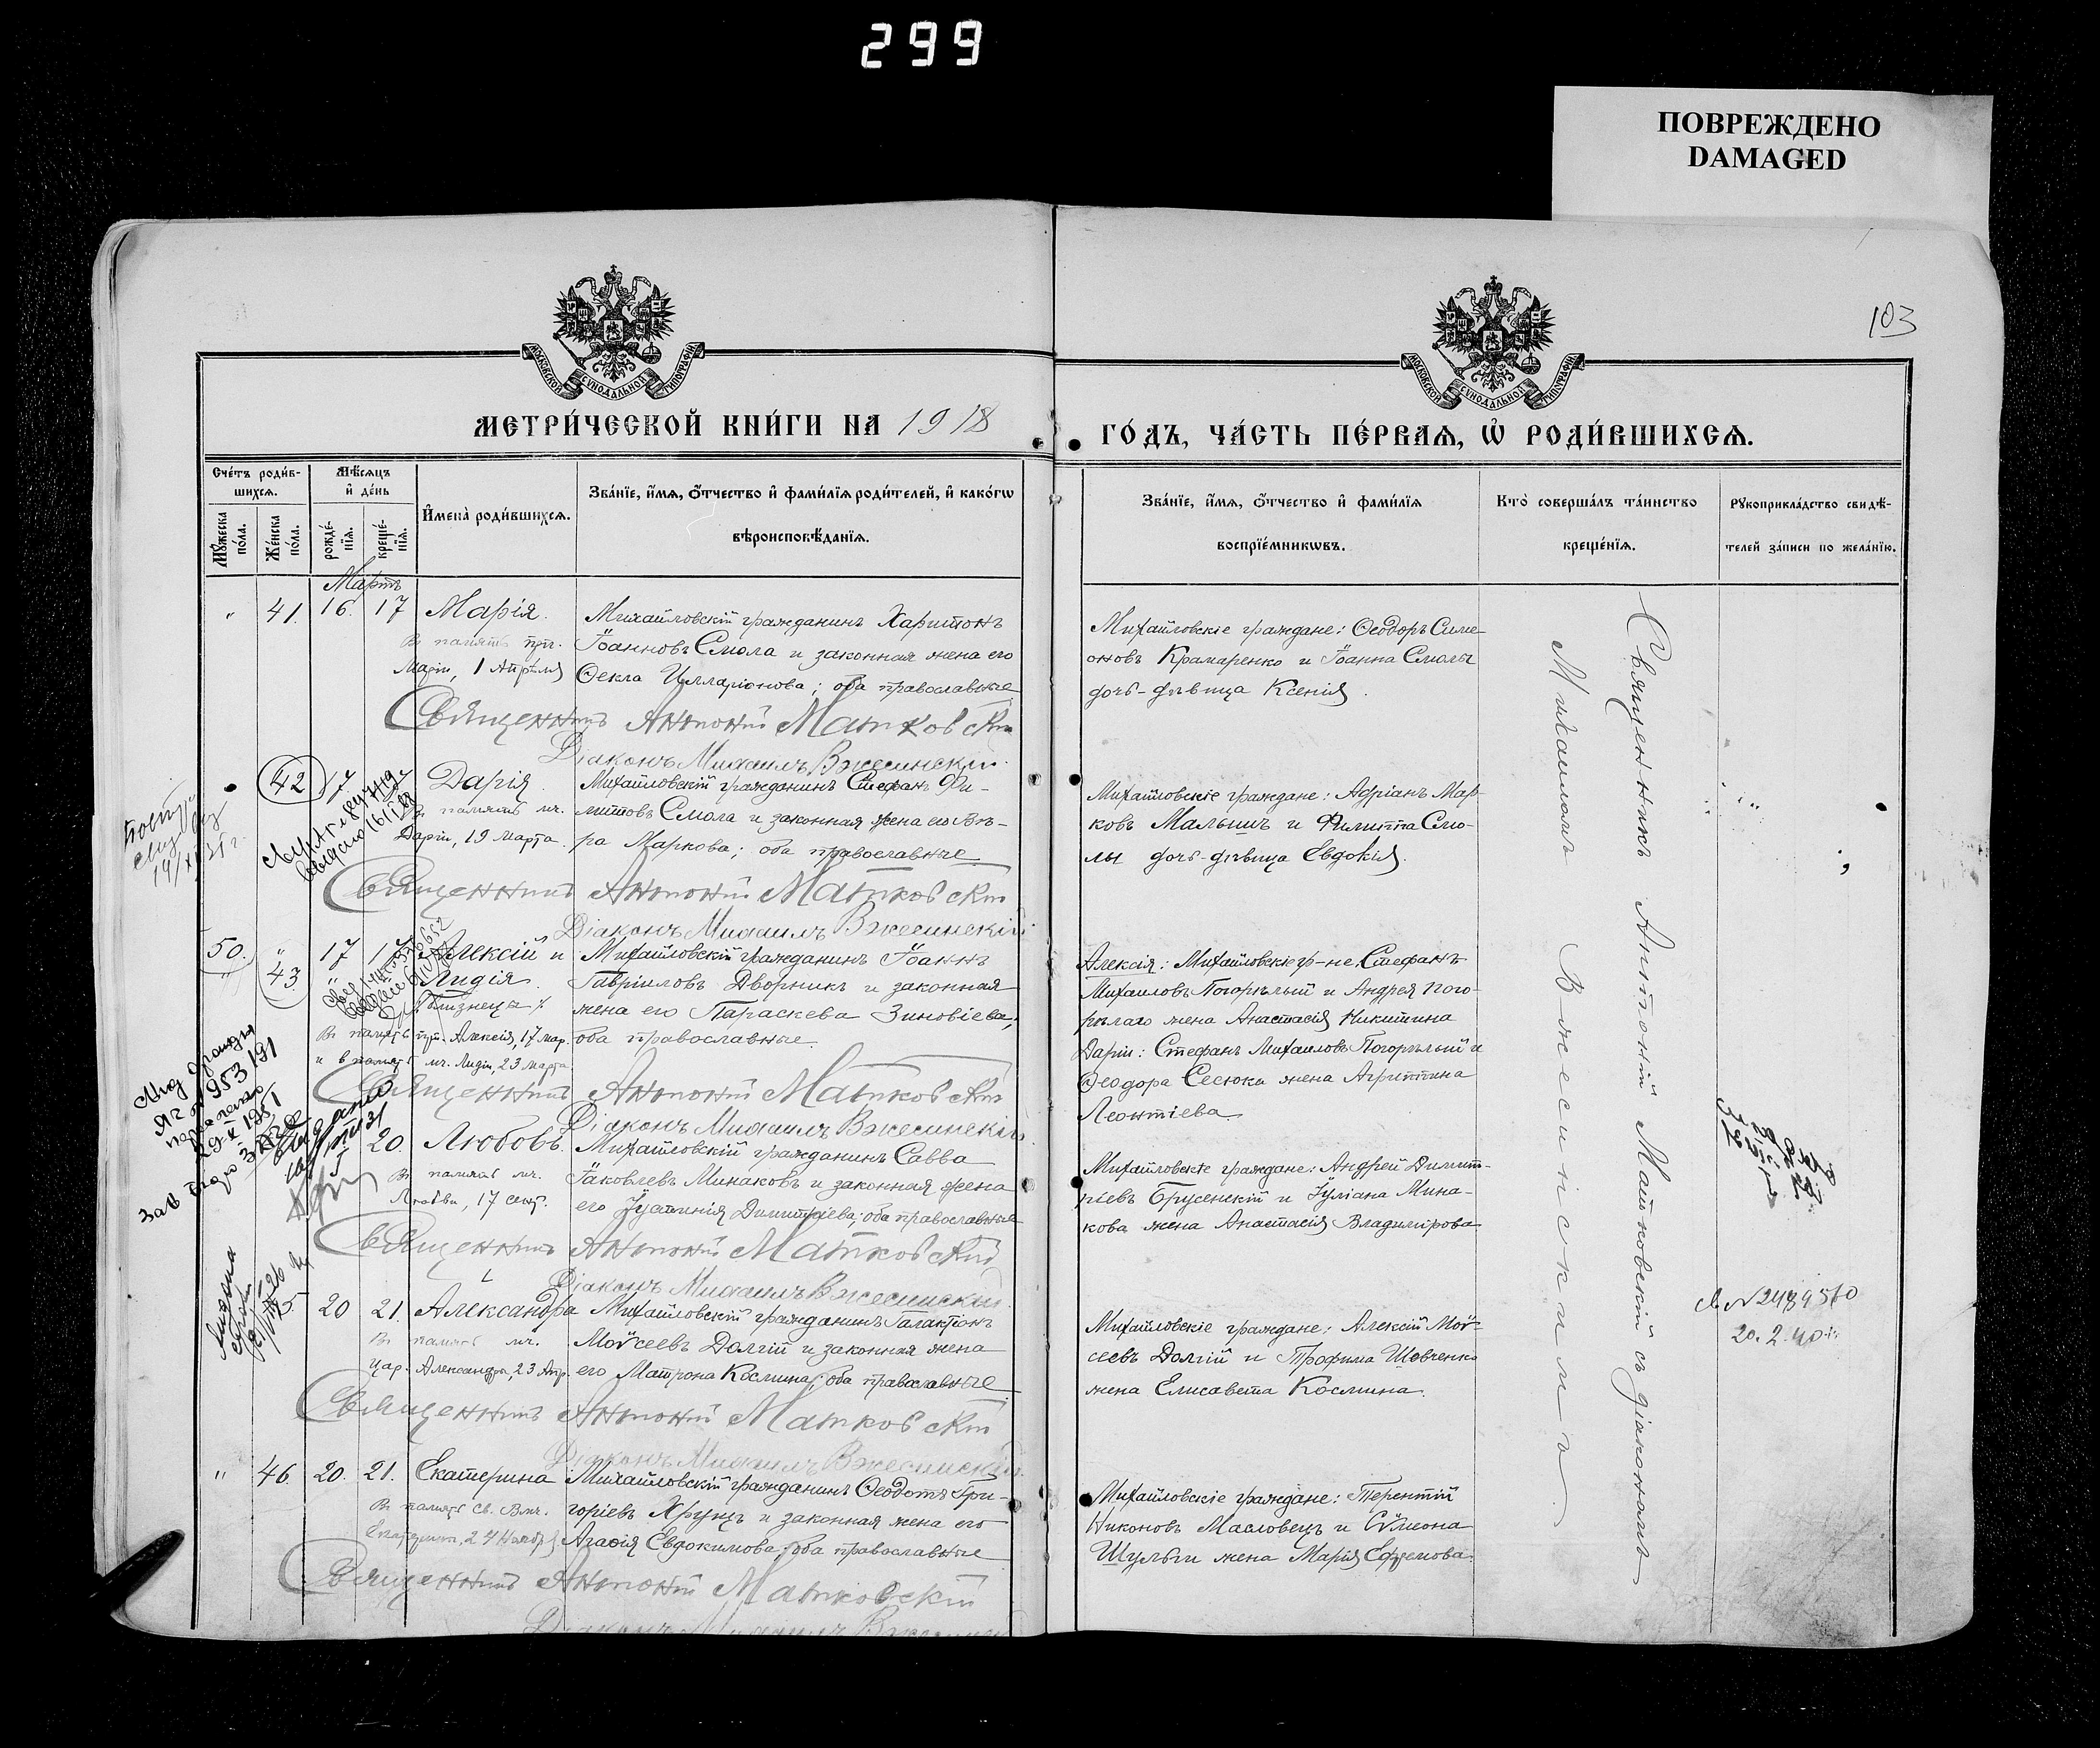 299
ПОВРЕЖДЕНО
DAMAGED
103
МОСКОВСКОЙ СУНОДАЛЬНОЙ ТИПОГРАФІИ
МОСКОВСКОЙ СУНОДАЛЬНОЙ ТИПОГРАФІИ
МЕТРИ́ЧЕСКОЙ КНИ́ГИ НА 1918
ГО́ДЪ, ЧА́СТЬ ПЕ́РВАѦ, Ѡ҆ РОДИ́ВШИХСѦ.
Сче́тъ роди́в-
шихсѧ.
Мꙋ́жеска по́ла.
Же́нска по́ла.
Мѣ́сѧцъ
и҆ де́нь
рожде́-
нїѧ.
креще́-
нїѧ.
И҆мена̀ роди́вшихсѧ.
Зва́нїе, и҆́мѧ, ѻ҆́тчество и҆ фами́лїѧ роди́телей, и҆ како́гѡ
вѣроисповѣ́данїѧ.
Зва́нїе, и҆́мѧ, ѻ҆́тчество и҆ фами́лїѧ
воспрїе́мникѡвъ.
Кто̀ соверша́лъ та́инство
креще́нїѧ.
Рꙋкоприкла́дство свидѣ́-
телей за́писи по жела́нїю.
Мартъ
" 41. 16. 17 Марія.
Въ память прп.
Маріи, 1 Апрѣля
Михайловскій гражданинъ Харитонъ
Іоанновъ Смола и законная жена его
Ѳекла Илларіонова; оба православные
Священникъ Антоній Матковскій
Діаконъ Михаилъ Вжесинскій.
Михайловскіе граждане: Ѳеодоръ Симе-
оновъ Крамаренко и Іоанна Смолы
дочь-дѣвица Ксенія.
42 17 Дарія
Въ память мч.
Даріи, 19 марта.
Михайловскій гражданинъ Стефанъ Фи-
липповъ Смола и законная жена его Вѣ-
ра Маркова; оба православные
Священникъ Антоній Матковскій
Діаконъ Михаилъ Вжесинскій
Михайловскіе граждане: Адріанъ Мар-
ковъ Малышъ и Филиппа Смо-
лы дочь-дѣвица Евдокія.
50. " 17 17 Алексій и
" 43 " Лидія
близнецы
Въ память прп. Алексія, 17 мар.
и въ память мч. Лидіи, 23 марта
Михайловскій гражданинъ Іоаннъ
Гавріиловъ Дворникъ и законная
жена его Параскева Зиновіева;
оба православные.
Священникъ Антоній Матковскій
Діаконъ Михаилъ Вжесинскій.
Алексія: Михайловскіе гр-не, Стефанъ
Михаиловъ Погорѣлый и Андрея Пого-
рѣлаго жена Анастасія Никитина
Даріи: Стефанъ Михаиловъ Погорѣлый и
Ѳеодора Сесюка жена Агриппина
Леонтіева
20. Любовь.
Въ память мч.
Любви, 17 сент.
Михайловскій гражданинъ Савва
Іаковлевъ Минаковъ и законная жена
его Іустинія Димитріева; оба православные
Священникъ Антоній Матковскій
Діаконъ Михаилъ Вжесинскій
Михайловскіе граждане: Андрей Димит-
ріевъ Брусенскій и Іуліана Мина-
кова жена Анастасія Владимірова
20 21. Александра
Въ память мч.
цар. Александры, 23 Апр.
Михайловскій гражданинъ Галактіонъ
Моѵсеевъ Долгій и законная жена
его Матрона Космина; оба православные
Священникъ Антоній Матковскій
Діаконъ Михаилъ Вжесинскій.
Михайловскіе граждане: Алексій Моѵ-
сеевъ Долгій и Трофима Шевченко
жена Елисавета Космина.
№2489510
20.2.40
" 46. 20. 21. Екатерина
Въ память св. Вмч.
Екатерины, 24 Ноября
Михайловскій гражданинъ Ѳеодотъ Гри-
горіевъ Хрунъ и законная жена его
Агаѳія Евдокимова; оба православные
Священникъ Антоній Матковскій
Діаконъ Михаилъ Вжесинскій
Михайловскіе граждане: Терентій
Никоновъ Масловецъ и Сѵмеона
Шульги жена Марія Ефремова.
Священникъ Антоній Матковскій съ діакономъ
Михаиломъ Вжесинскимъ.